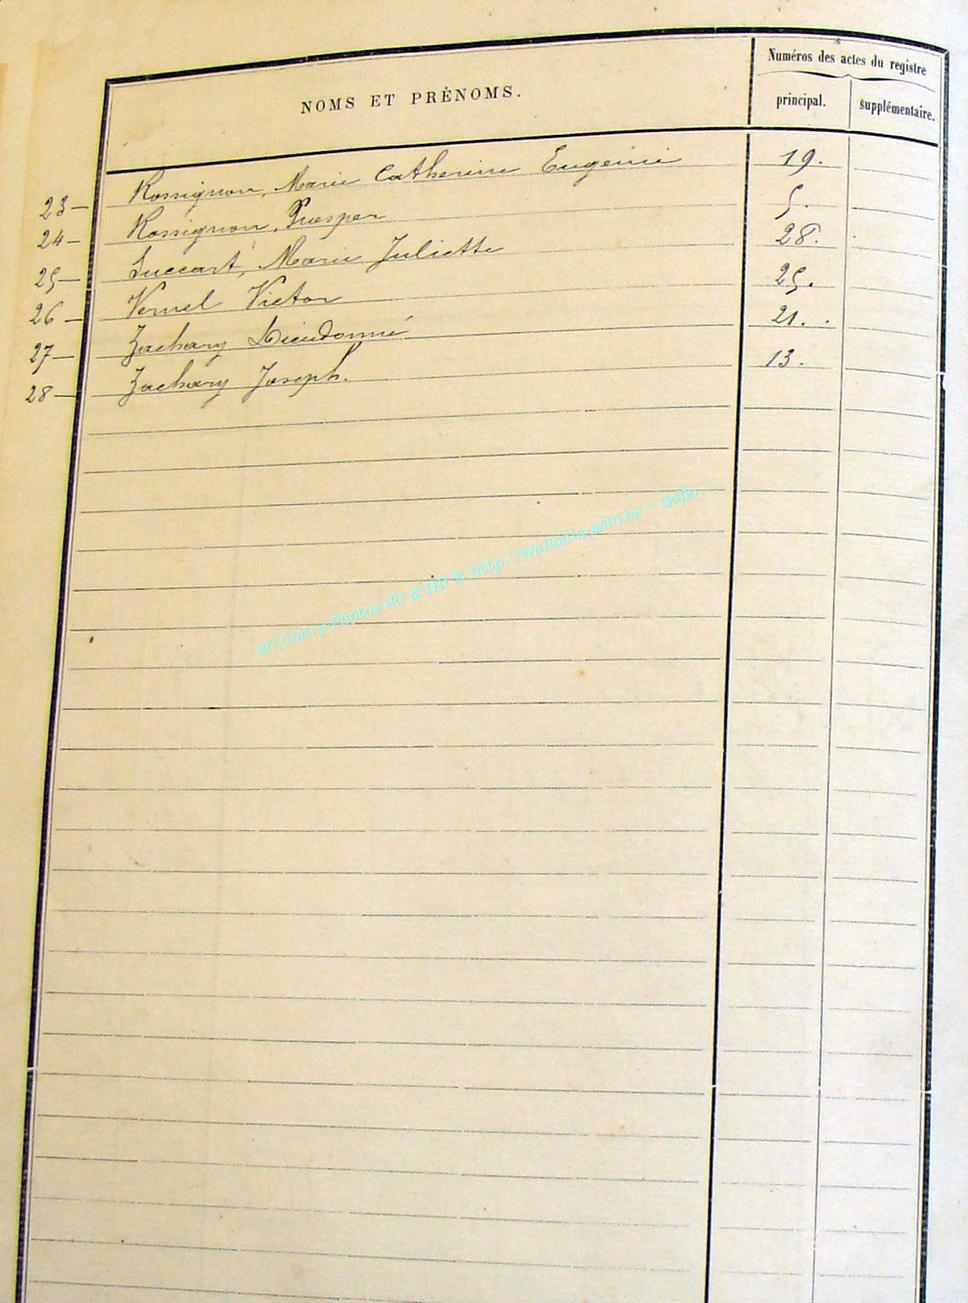 NOMS ET PRÉNOMS.
Numéros des actes du registre
principal.
supplémentaire.
23 - Rossignon, Marie Catherine Eugénie 19.
24 - Rossignon, Prosper 5.
25 - Succart, Marie Juliette 28.
26 - Victor 25.
27 - Zachary Dieudonné 21.
28 - Zachary Joseph. 13.
AC Chiny-Photos JC & HD @ http//wallonia-asbl.be - GeJro